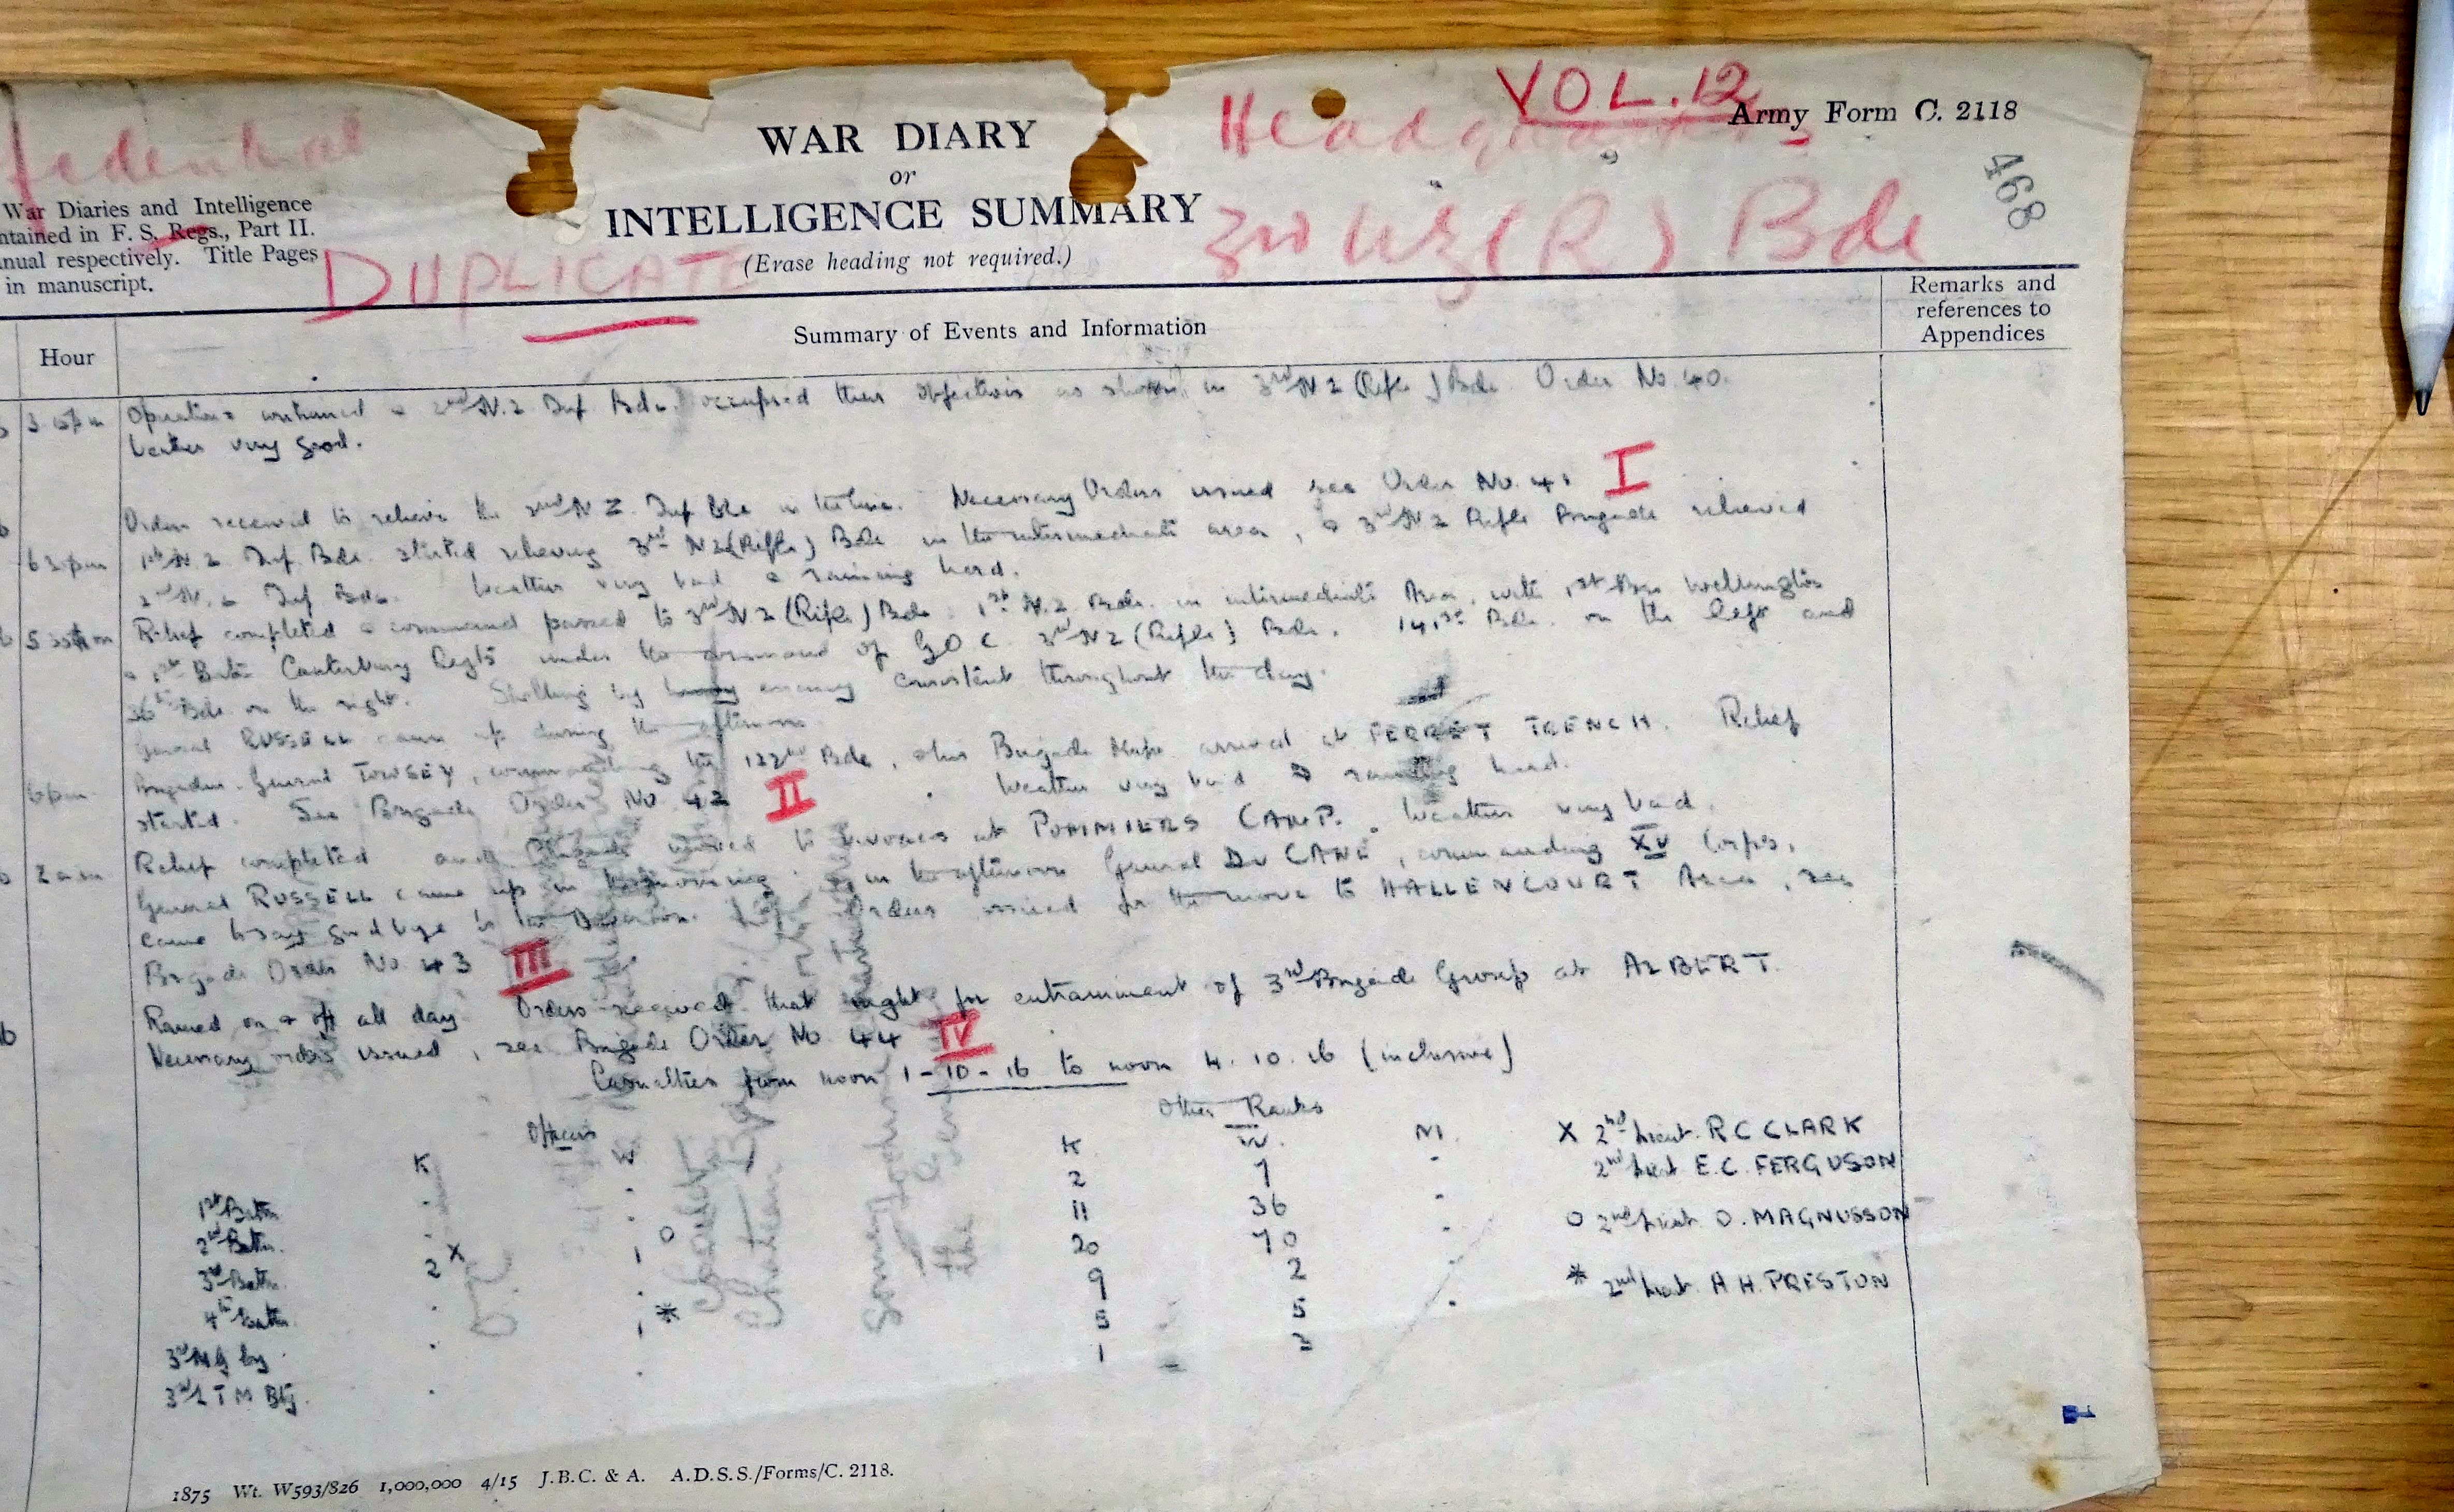 VOL. 12
Army Form C. 2118
Headquarters
468
WAR DIARY
or
INTELLIGENCE SUMMARY
(Erase heading not required.)
3rd NZ (R) Bde
War Diaries and Intelligence
ntained in F. S. Regs., Part II.
nual respectively. Title Pages
in manuscript.
DUPLICATE
Hour
Summary of Events and Information
Remarks and
references to
Appendices
Operations continued & 2nd N.Z. Inf. Bde. occupied their objectives as shown in 3rd NZ (Rifle) Bde. Order No. 40.
Weather very good.
Orders received to relieve the 2nd N Z. Inf Bde in the line. Necessary Orders issued see Order No. 41 I
6 30 pm 1st N.Z. Inf. Bde. started relieving 3rd NZ (Rifle) Bde in the intermediate area, & 3rd NZ Rifle Brigade relieved
2nd N.Z. Inf Bde. Weather very bad & raining hard.
Relief completed & command passed to 3rd NZ (Rifle) Bde. 1st N.Z. Bde. in intermediate Area, with 1st Bn Wellington
& 1st Batn Canterbury Regts under the command of GOC. 3rd NZ (Rifle) Bde. 141st Bde. on the left and
36th Bde on the right. Shelling by enemy consistent throughout the day.
General RUSSELL came up during the afternoon.
6 pm. Brigadier General TOWSEY, commanding the 122nd Bde, & his Brigade Major arrived at FERRET TRENCH. Relief
started. See Brigade Order No. 42 II. Weather very bad & raining hard.
2 am Relief completed and Brigade moved to bivouacs at POMMIERS CAMP. Weather very bad.
General RUSSELL came up in the morning. In the afternoon General Du CANE, commanding XV Corps,
came to say good bye to the Division. Orders issued for the move to HALLENCOURT Area, see
Brigade Order No 43 III
Rained on & off all day. Orders received that night for entrainment of 3rd Brigade Group at ALBERT.
Necessary orders issued, see Brigade Order No 44 IV
Casualties from noon 1-10-16 to noon 4.10.16 (inclusive)
Officers Other Ranks
K W K W. M.
1st Batn . . 2 7 .
2nd Batn. . . 11 36 .
3rd Batn. 2 X 1 O 20 70 .
4th Batn. . . 9 2 .
3rd MG Coy . 1 * 5 5 .
3rd L T M Bty. . . 1 3
X 2nd Lieut. R C CLARK
2nd Lieut E.C. FERGUSON
O 2nd Lieut O. MAGNUSSON
* 2nd Lieut. A H. PRESTON
1875 Wt. W593/826 1,000,000 4/15 J.B.C. & A. A.D.S.S./Forms/C. 2118.